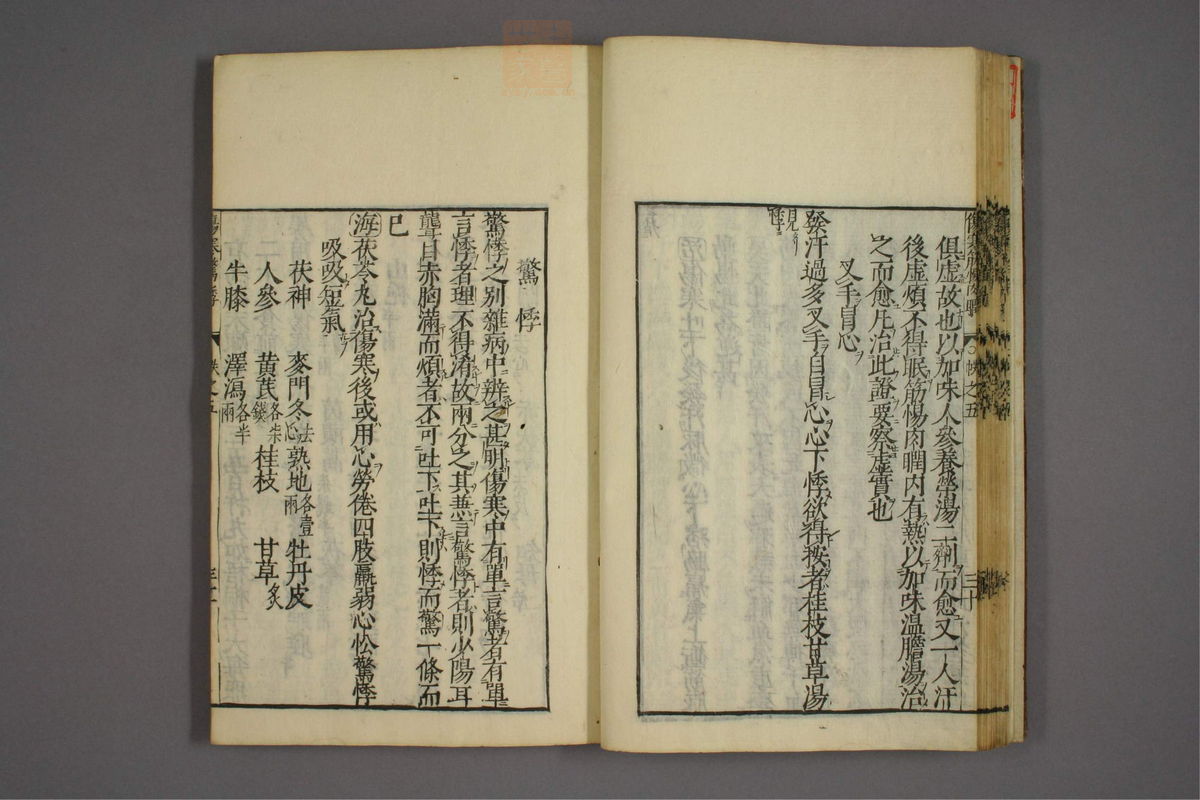 俱虛故也以加味人參養榮湯二劑而愈又一人汗
後虛煩不得眠筋惕肉瞤内有熱以加味温膽湯治
之而愈凡治此證要察虛實也
叉手冒心
發汗過多叉手自冒心心下悸欲得按者桂枝甘草湯
見前
悸
帙之五
三十
驚悸
驚悸之别雜病中辨之甚明傷寒中有單言驚者有單
言悸者理不得淆故兩分之其兼言驚悸者則少陽耳
聾目赤胸滿而煩者不可吐下吐下則悸而驚一條而
已
海茯苓丸治傷寒後或用心勞倦四肢羸弱心忪驚悸
吸吸短氣
茯神 麥門冬去心 熟地各壹兩 牡丹皮
人參 黃芪各柒錢 桂枝 甘草炙
牛膝 澤瀉各半兩
傷寒驚悸
帙之五